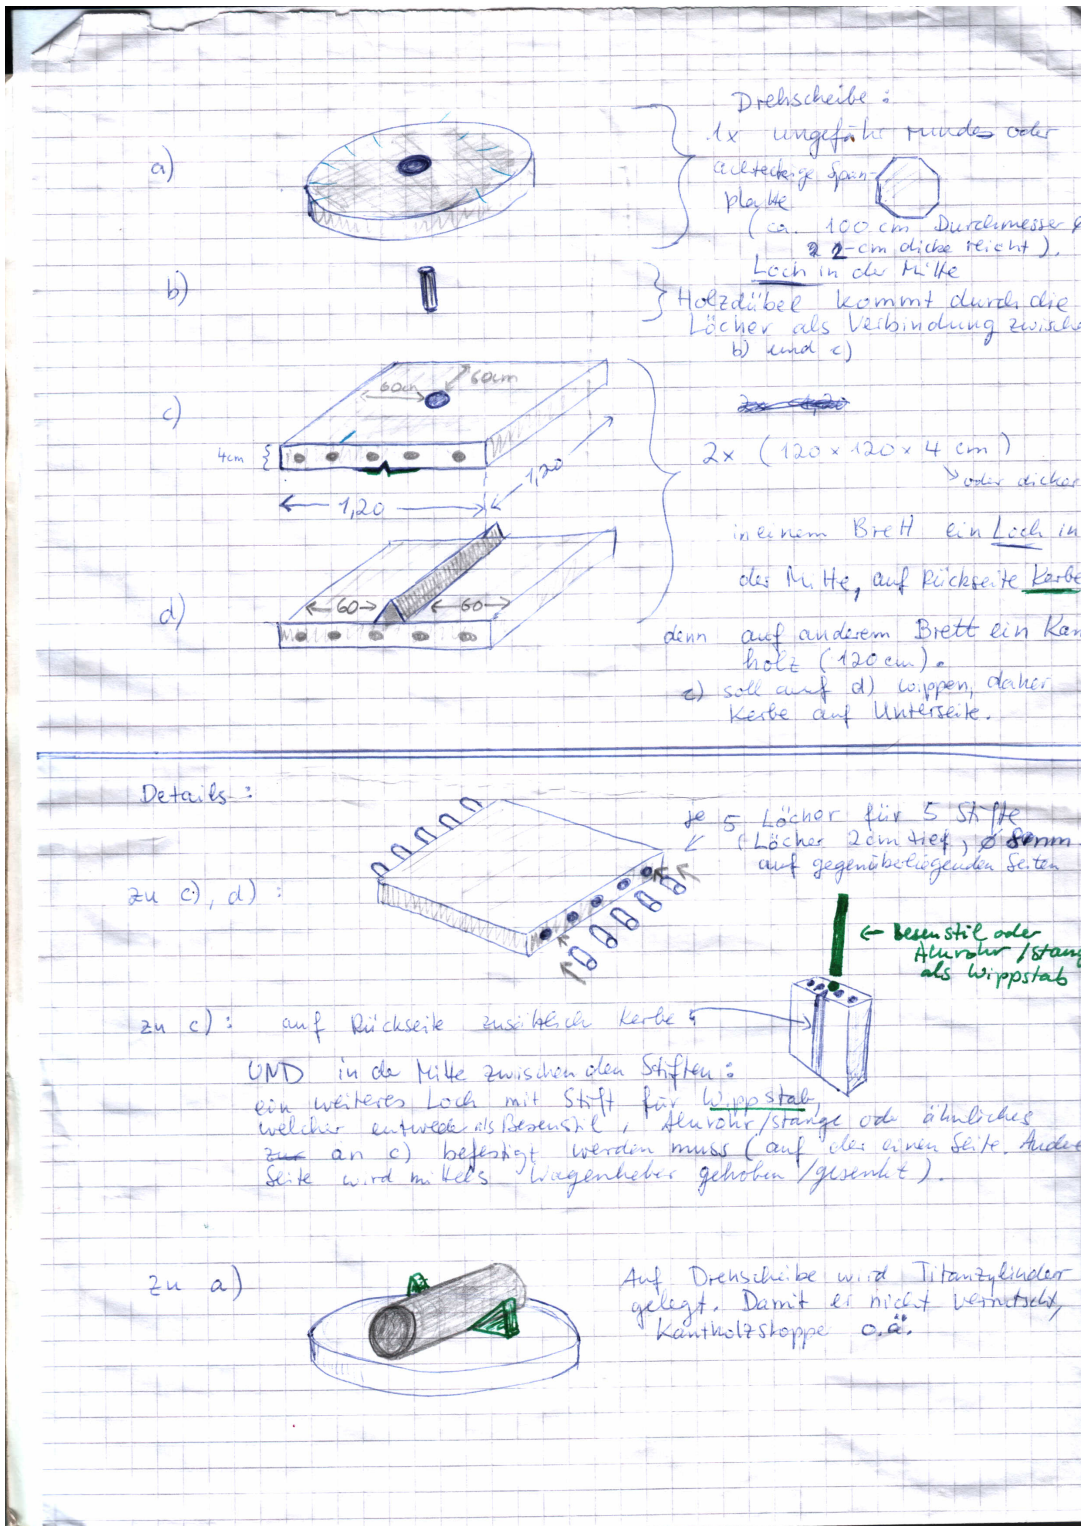 Drehscheibe :
a)
1x ungefähr rundes oder
achteckige Span-
platte
(ca. 100 cm Durchmesser &
2-cm dicke reicht).
Loch in der Mitte
b)
Holzdübel kommt durch die
Löcher als Verbindung zwische
b) und c)
60cm
60cm
c)
4cm
2x (120 x 120 x 4 cm)
oder dicker
1,20
1,20
in einem Brett ein Loch in
der Mitte, auf Rückseite Kerbe
60
60
d)
denn auf anderem Brett ein Kan
holz (120 cm).
c) soll auf d) wippen, daher
Kerbe auf Unterseite.
Details :
je 5 Löcher für 5 Stifte
(Löcher 2cm tief, ø 8mm
auf gegenüberliegenden Seiten
zu c), d) :
← Besenstil oder
Alurohr/stang
als Wippstab
zu c) : auf Rückseite zusätzlich Kerbe
UND in der Mitte zwischen den Stiften :
ein weiteres Loch mit Stift für Wippstab,
welcher entweder als Besenstil, Alurohr/stange oder ähnliches
an c) befestigt werden muss (auf der einen Seite. Andere
Seite wird mittels Wagenheber gehoben/gesenkt).
zu a)
Auf Drehscheibe wird Titanzylinder
gelegt. Damit er nicht verrutscht,
Kantholzstoppe o.ä.